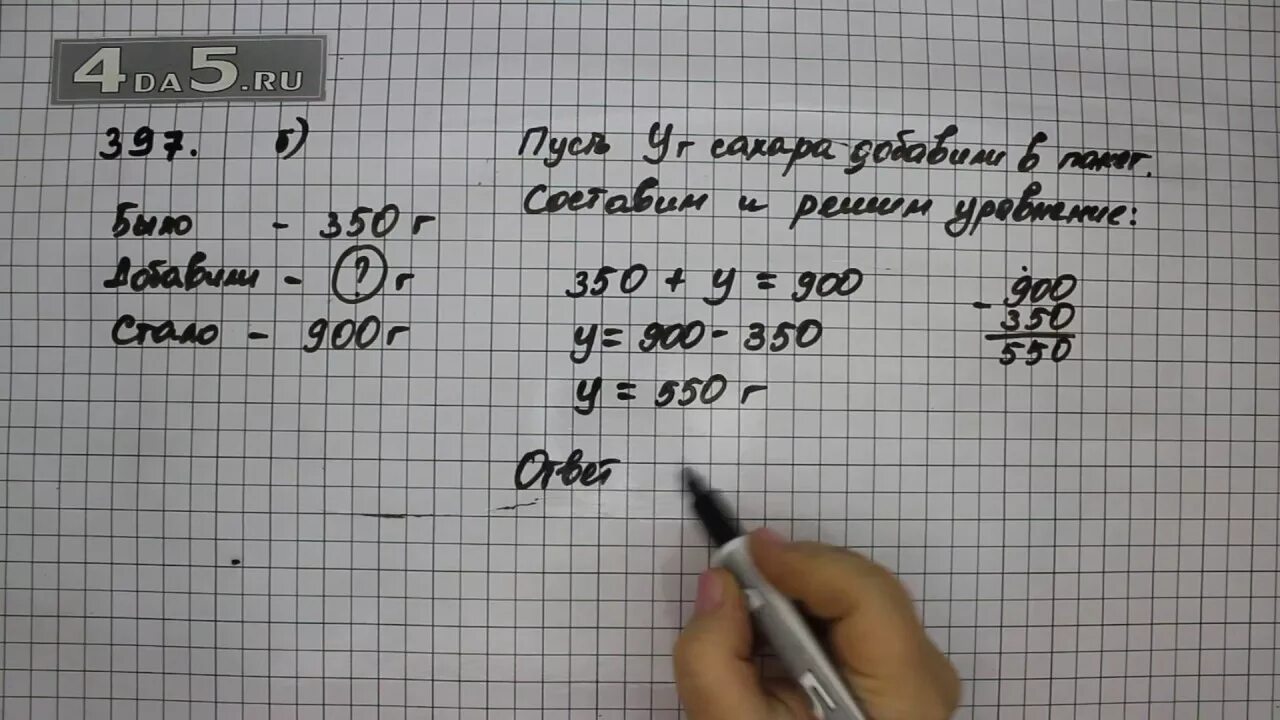 4DA5.RU
397. б)
Было - 350 г
Добавили - ? г
Стало - 900 г
Пусть У г сахара добавили в пакет.
Составим и решим уравнение:
350 + у = 900
у = 900 - 350
у = 550 г
900
- 350
550
Ответ